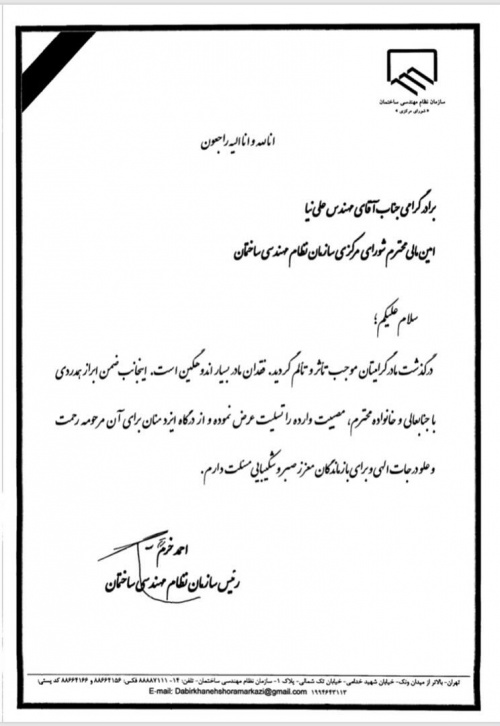 سازمان نظام مهندسی ساختمان
« شورای مرکزی »
انا لله و انا الیه راجعون
برادر گرامی جناب آقای مهندس علی نیا
امین مالی محترم شورای مرکزی سازمان نظام مهندسی ساختمان
سلام علیکم؛
درگذشت مادر گرامیتان موجب تاثر و تالم گردید. فقدان مادر بسیار اندوهگین است. اینجانب ضمن ابراز همدردی
با جنابعالی و خانواده محترم، مصیبت وارده را تسلیت عرض نموده و از درگاه ایزد منان برای آن مرحومه رحمت
و علو درجات الهی و برای بازماندگان معزز صبر و شکیبایی مسئلت دارم.
احمد خرم
رئیس سازمان نظام مهندسی ساختمان
تهران- بالاتر از میدان ونک- خیابان شهید خدامی- خیابان تک شمالی- پلاک ۱- سازمان نظام مهندسی ساختمان- تلفن: ۱۴- ۸۸۸۸۷۱۱۱ فکس: ۸۸۶۶۴۱۵۶ و ۸۸۶۶۴۱۶۶ کد پستی:
۱۹۹۴۶۴۳۱۱۳ E-mail: Dabirkhanehshoramarkazi@gmail.com